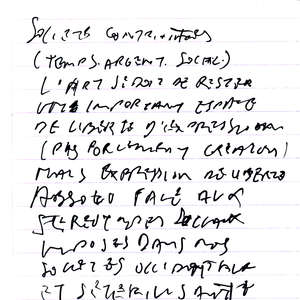 SOCIETE CONTRAINTES
(TEMPS. ARGENT. SOCIAL.)
L'ART SE DOIT DE RESTER
UN IMPORTANT ESPACE
DE LIBERTE D'EXPRESSION
(PAS FORCEMENT CREATION)
MAIS EXPRESSION DE LIBERTE
ABSOLUE FACE AUX
STEREOTYPES SOCIAUX
IMPOSES DANS NOS
SOCIETES OCCIDENTALES
ET